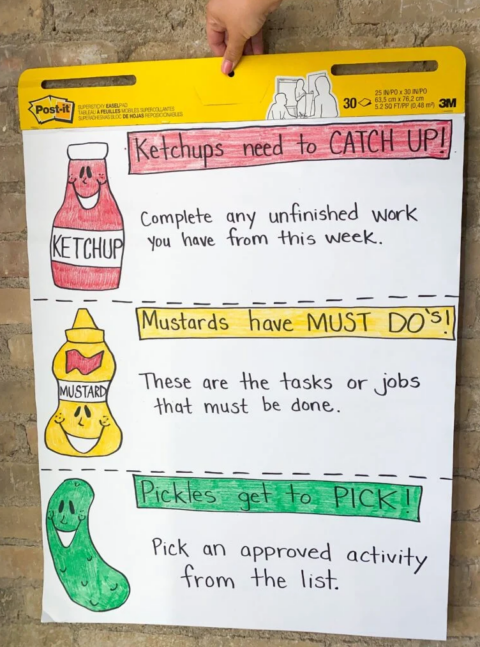 Post-it
SUPERSTICKY EASEL PAD
TABLEAU À FEUILLES MOBILES SUPERCOLLANTES
30
25 IN/PO x 30 IN/PO
63,5 cm x 76,2 cm
5.2 SQ FT/PI² (0,48 m²)
3M
Ketchups need to CATCH UP!
KETCHUP
Complete any unfinished work
you have from this week.
Mustards have MUST DO's!
MUSTARD
These are the tasks or jobs
that must be done.
Pickles get to PICK!
Pick an approved activity
from the list.